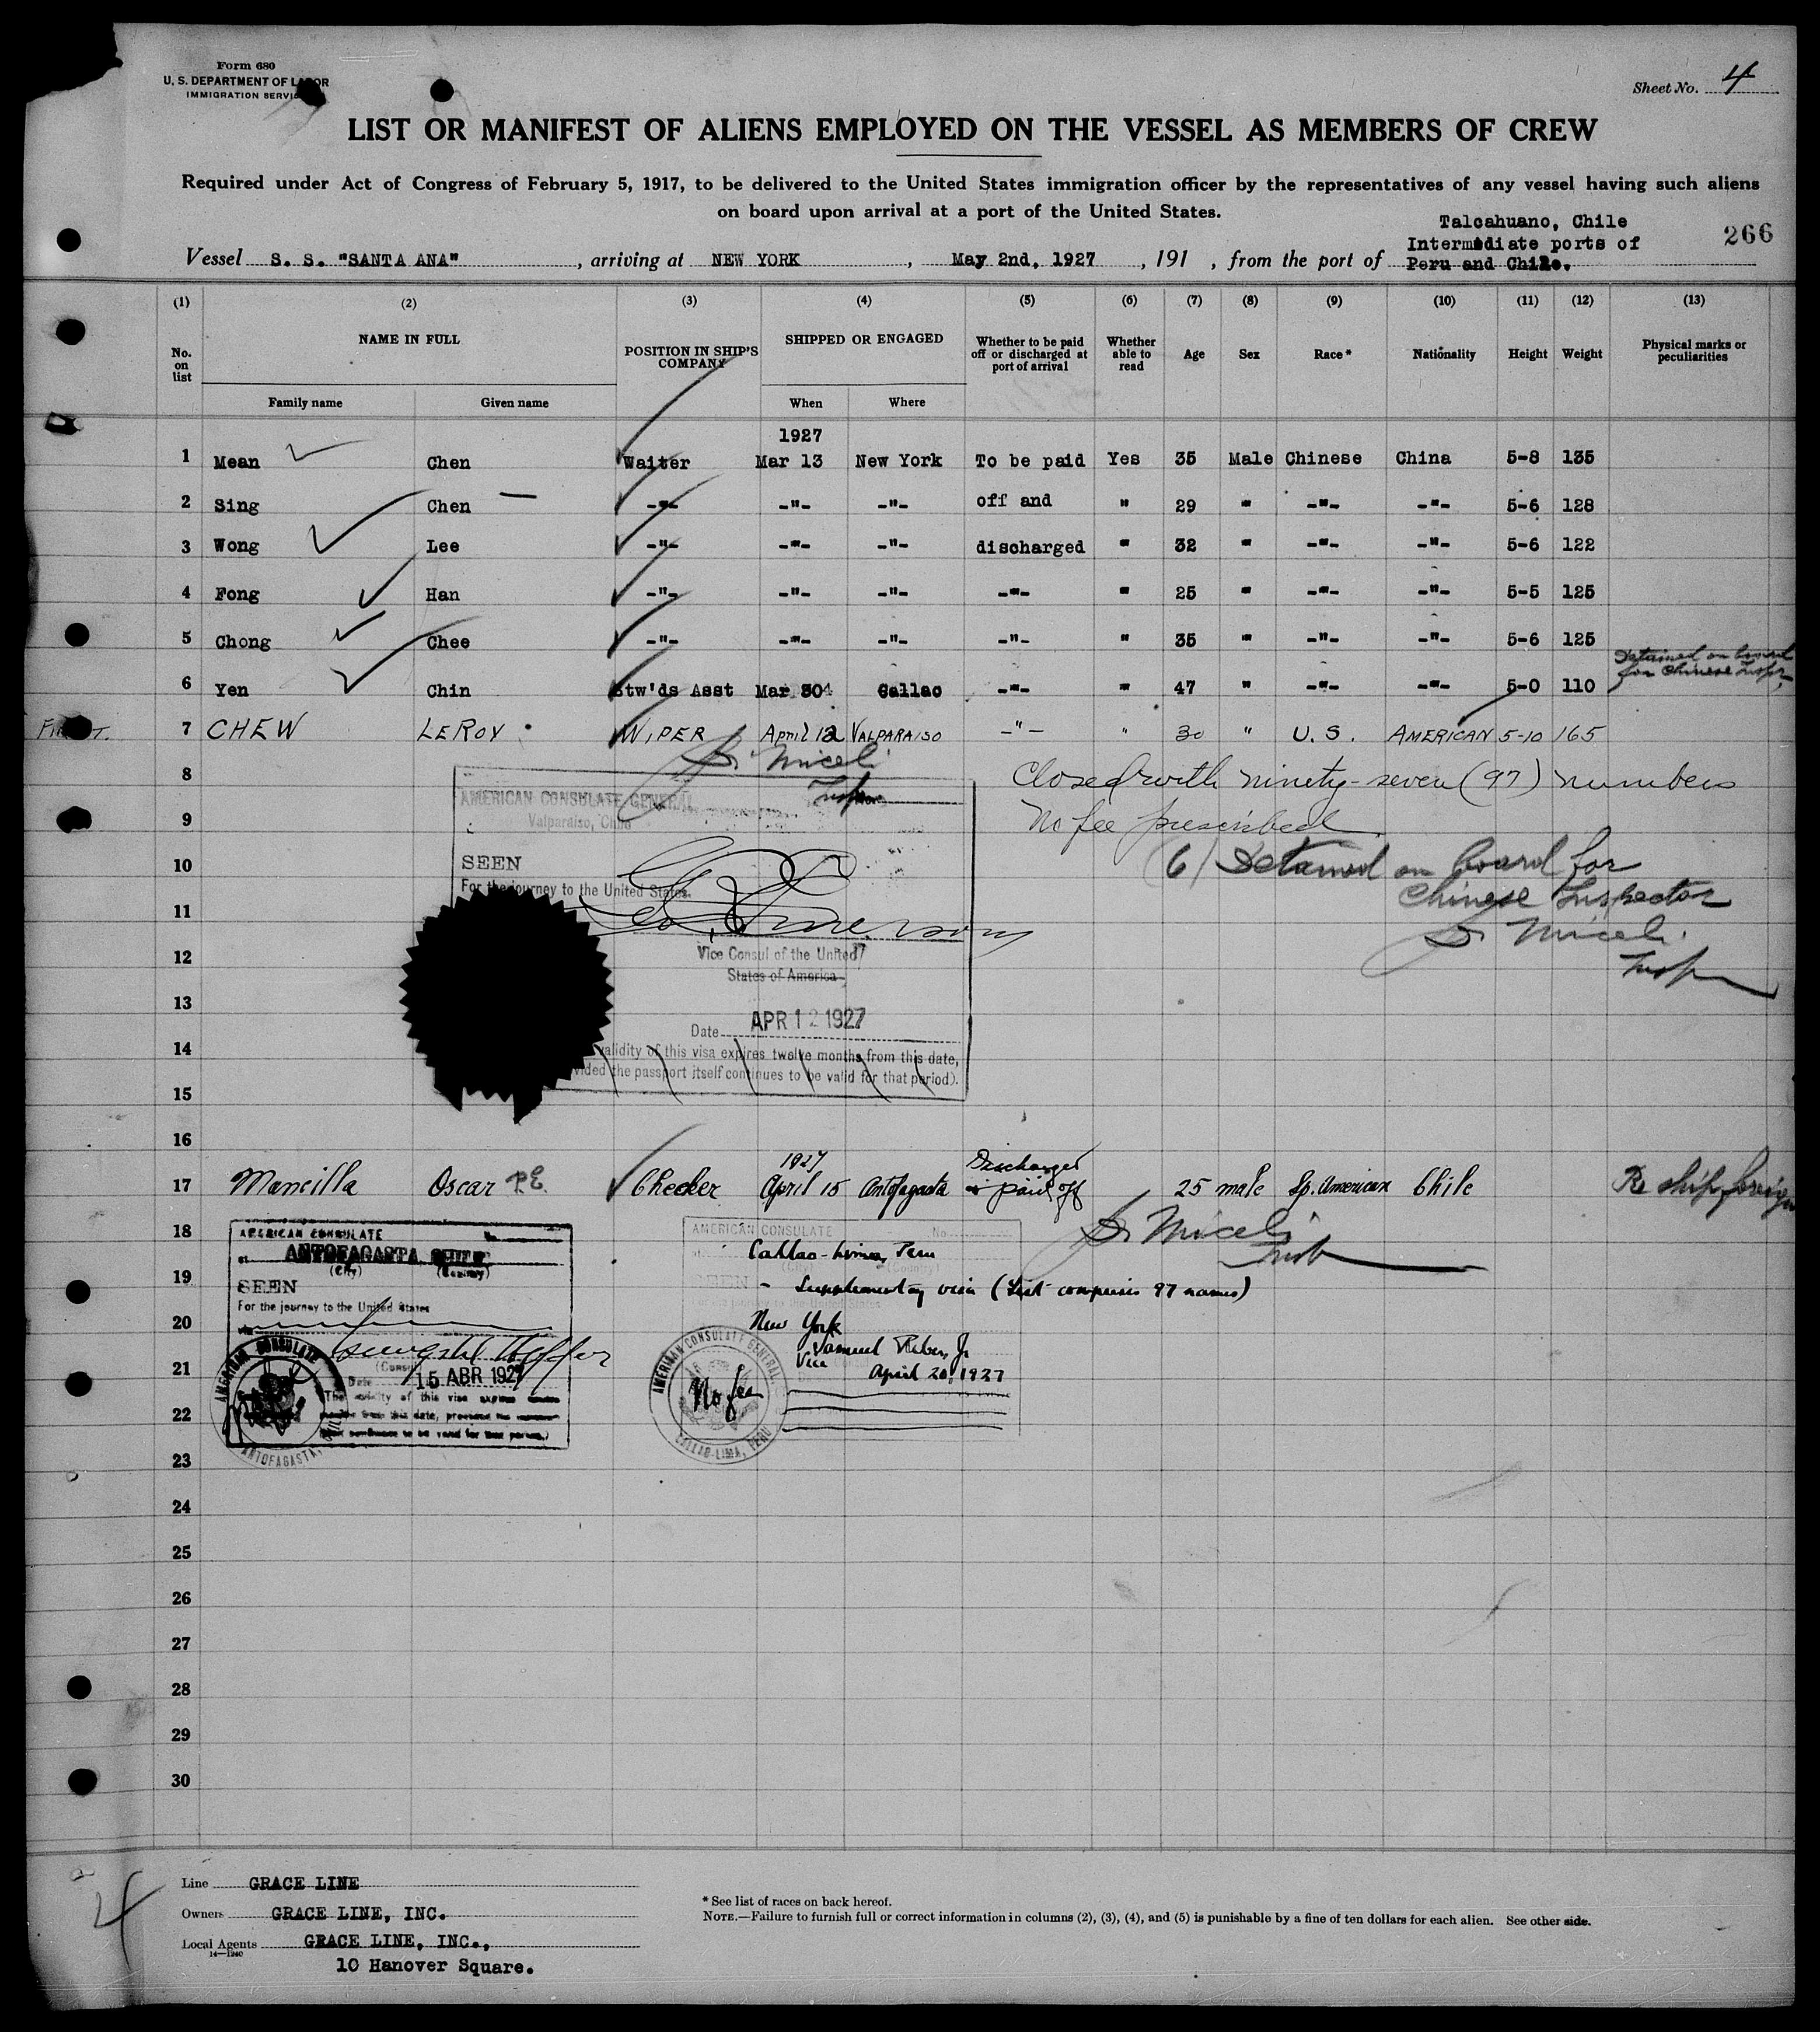 Form 680
U. S. DEPARTMENT OF LABOR
IMMIGRATION SERVICE
Sheet No. 4
LIST OR MANIFEST OF ALIENS EMPLOYED ON THE VESSEL AS MEMBERS OF CREW
Required under Act of Congress of February 5, 1917, to be delivered to the United States immigration officer by the representatives of any vessel having such aliens
on board upon arrival at a port of the United States.
Talcahuano, Chile
Intermediate ports of
266
Vessel S. S. "SANTA ANA", arriving at NEW YORK, May 2nd, 1927, 191 , from the port of Peru and Chile.
(1) (2) (3) (4) (5) (6) (7) (8) (9) (10) (11) (12) (13)
No. on list NAME IN FULL POSITION IN SHIP'S COMPANY SHIPPED OR ENGAGED Whether to be paid off or discharged at port of arrival Whether able to read Age Sex Race* Nationality Height Weight Physical marks or peculiarities
Family name Given name When Where
1927
1 Mean Chen Waiter Mar 13 New York To be paid Yes 35 Male Chinese China 5-8 135
2 Sing Chen -"- -"- -"- off and " 29 " -"- -"- 5-6 128
3 Wong Lee -"- -"- -"- discharged " 32 " -"- -"- 5-6 122
4 Fong Han -"- -"- -"- -"- " 25 " -"- -"- 5-5 125
5 Chong Chee -"- -"- -"- -"- " 35 " -"- -"- 5-6 125
Detained on board
for Chinese Inspr
6 Yen Chin Stw'ds Asst Mar 30 Callao -"- " 47 " -"- -"- 5-0 110
7 CHEW LEROY WIPER April 12 VALPARAISO -"- " 30 " U.S. AMERICAN 5-10 165
S. Miceli
Insp
8 Closed with ninety-seven (97) numbers
AMERICAN CONSULATE GENERAL
Valparaiso, Chile
9 No fee prescribed
10 SEEN
(6) Detained on board for
For the journey to the United States.
Chinese Inspector
11
S. Miceli
Insp
12 Vice Consul of the United
States of America
13
Date APR 12 1927
14 validity of this visa expires twelve months from this date,
vided the passport itself continues to be valid for that period).
15
16
1927 Discharged
17 Mancilla Oscar P.E. Checker April 15 Antofagasta or paid off 25 male Sp. American Chile Re ship foreign
S. Miceli
Insp
18 AMERICAN CONSULATE
at ANTOFAGASTA, CHILE
(City) (Country)
19 SEEN
For the journey to the United States
20
21 (Consul)
Date 15 ABR 1927
The validity of this visa expires
22
AMERICAN CONSULATE
ANTOFAGASTA,
AMERICAN CONSULATE No.
Callao-Lima, Peru
(City) (Country)
SEEN - Supplementary visa (List comprises 97 names)
New York
Samuel Reber, Jr
Vice
April 20, 1927
AMERICAN CONSULATE GENERAL
No fee
CALLAO-LIMA, PERU
23
24
25
26
27
28
29
30
4
Line GRACE LINE
Owners GRACE LINE, INC.
Local Agents GRACE LINE, INC.,
14—1240
10 Hanover Square.
* See list of races on back hereof.
NOTE.—Failure to furnish full or correct information in columns (2), (3), (4), and (5) is punishable by a fine of ten dollars for each alien. See other side.